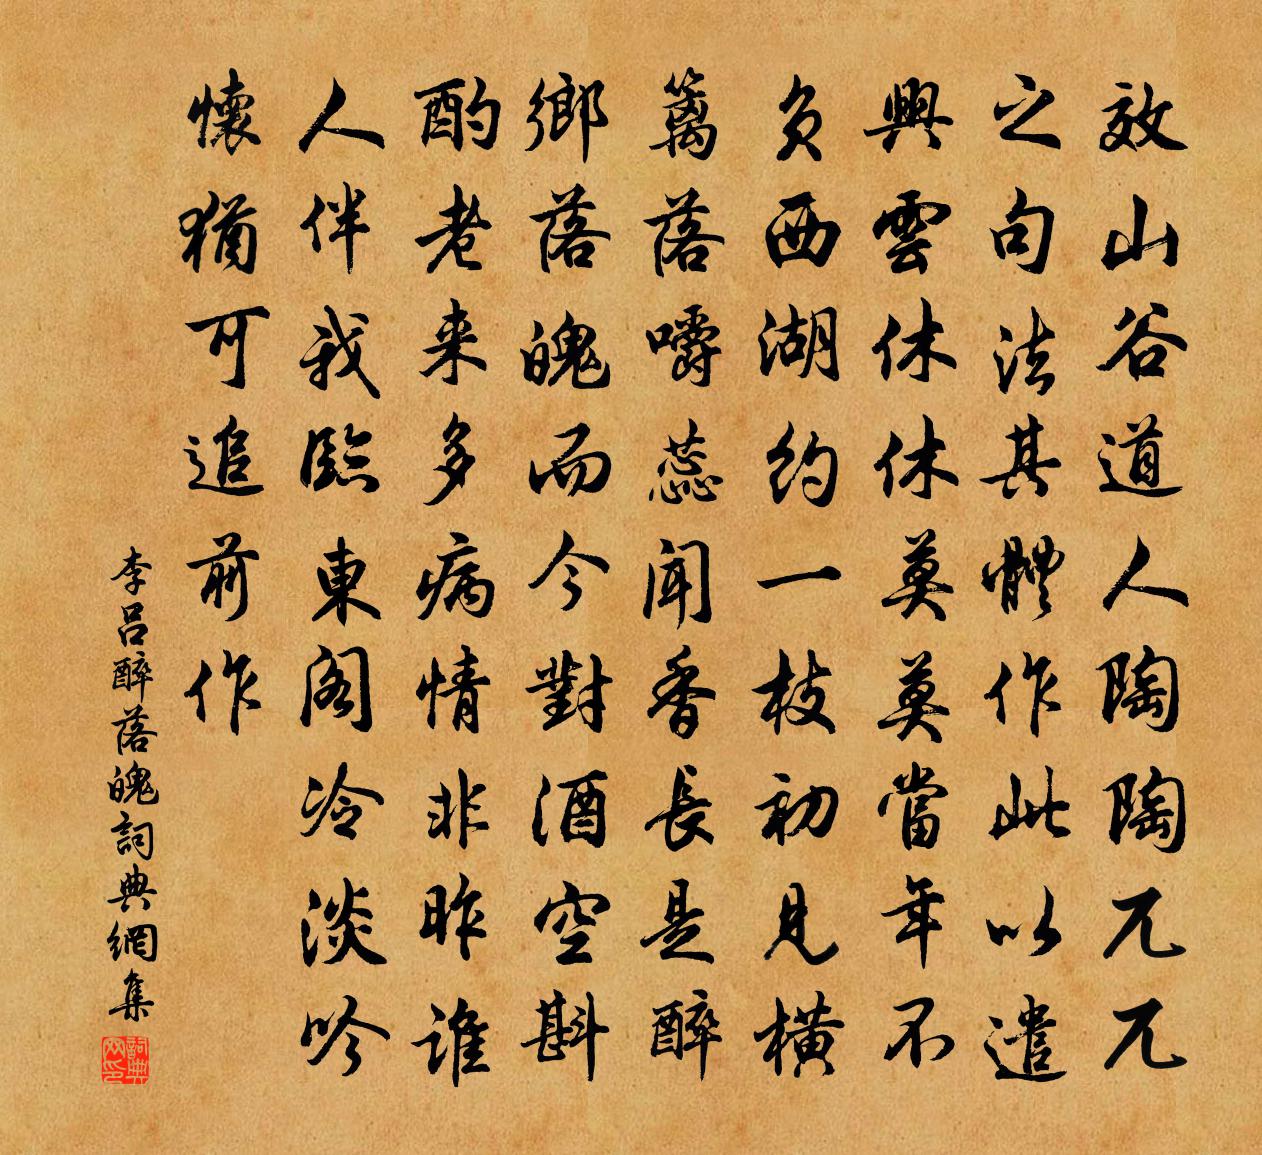 效山谷道人陶陶兀兀
之句法其體作此以遣
興雲休休莫莫當年不
負西湖約一枝初見橫
籬落嚼蕊聞香長是醉
鄉落魄而今對酒空斟
酌老来多病情非昨誰
人伴我臨東閣冷淡吟
懷猶可追前作
李呂醉落魄詞典網集
詞典网印